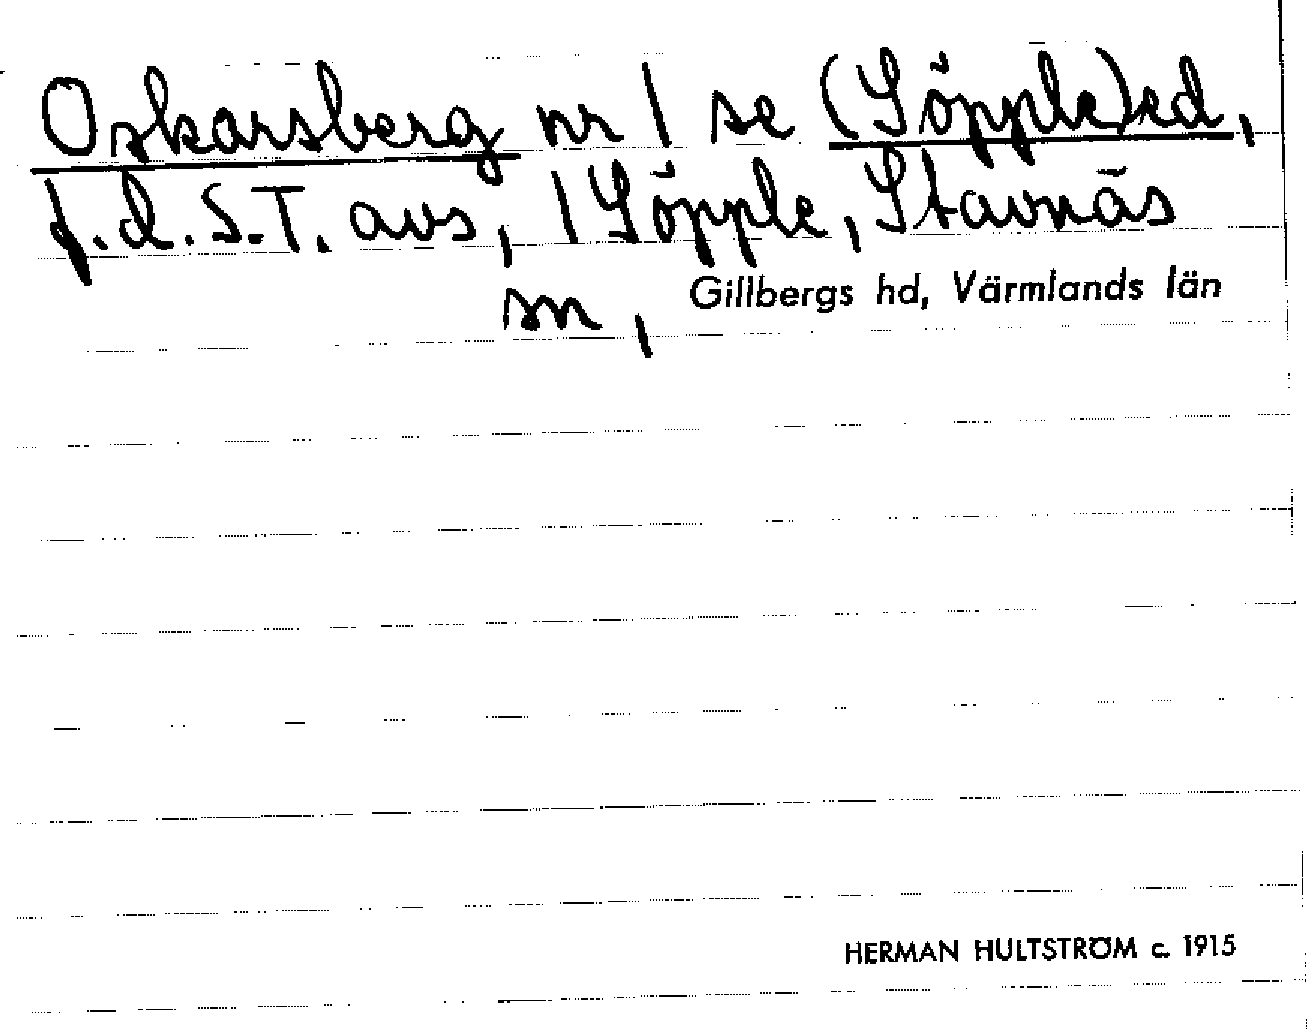 Oskarsberg nr 1 se (Söpple)ed,
f.d. S.T. avs, 1 Söpple, Stavnäs
sn, Gillbergs hd, Värmlands län
HERMAN HULTSTRÖM c. 1915